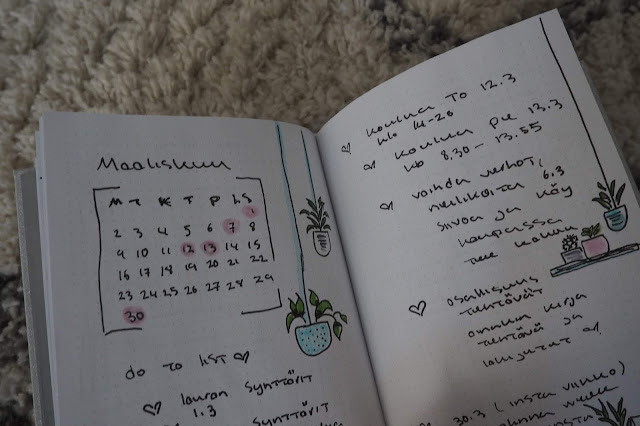 Maaliskuu
M T K T P L S
1
2 3 4 5 6 7 8
9 10 11 12 13 14 15
16 17 18 19 20 21 22
23 24 25 26 27 28 29
30
do to list
lauran synttärit
1.3
synttärit
koulua to 12.3
klo 14-20
koulua pe 13.3
klo 8.30-13.55
vaihda verhot,
6.3
siivoa ja käy
kaupassa
osallisuus
tehtävät
kirja
tehtävä ja
30.3 (insta viikko)